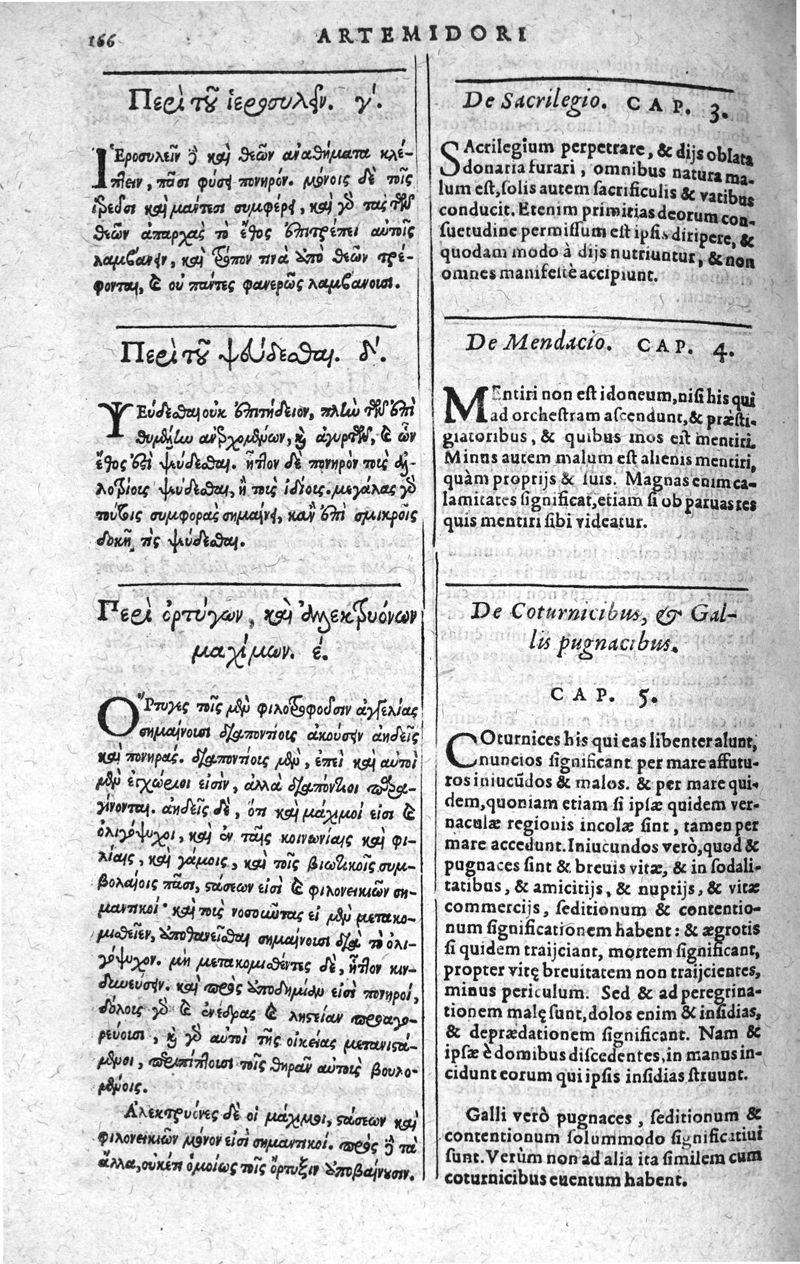 166
ARTEMIDORI
Περὶ τοῦ ἱεροσυλεῖν. γ´.
ἹΕροσυλεῖν δὲ καὶ θεῶν ἀναθήματα κλέ-
πτειν, πᾶσι φύσει πονηρόν. μόνοις δὲ τοῖς
ἱερεῦσι καὶ μάντεσι συμφέρει, καὶ γὸ τὰς τῶν
θεῶν ἀπαρχὰς τὸ ἔθος ἐπιτρέπει αὐτοῖς
λαμβάνειν, καὶ τρόπον τινὰ ὑπὸ θεῶν τρέ-
φονται, καὶ οὐ πάντες φανερῶς λαμβάνουσι.
Περὶ τοῦ ψεύδεσθαι. δ´.
ΨΕύδεσθαι οὐκ ἐπιτήδειον, πλὴν τῶν ἐπὶ
θυμέλην ἀνερχομένων, καὶ ἀγυρτῶν, καὶ ὧν
ἔθος ἐστὶ ψεύδεσθαι. ἧττον δὲ πονηρὸν τοὺς ἀλ-
λοτρίους ψεύδεσθαι, ἢ τοὺς ἰδίους. μεγάλας γὸ
τούτοις συμφορὰς σημαίνει, κἂν ἐπὶ σμικροῖς
δοκῇ τις ψεύδεσθαι.
Περὶ ὀρτύγων, καὶ ἀλεκτρυόνων
μαχίμων. έ.
ὌΡτυγες τοῖς μὲν φιλοτροφοῦσιν ἀγγελίας
σημαίνουσι διαποντίους ἀκούσειν ἀηδεῖς
καὶ πονηράς. διαποντίους μὲν, ἐπεὶ καὶ αὐτοὶ
μὲν ἐγχώριοι εἰσὶν, ἀλλὰ διαπόντιοι παρα-
γίνονται. ἀηδεῖς δὲ, ὅτι καὶ μάχιμοί εἰσι καὶ
ὀλιγόψυχοι, καὶ ἐν ταῖς κοινωνίαις καὶ φι-
λίαις, καὶ γάμοις, καὶ τοῖς βιωτικοῖς συμ-
βολαίοις πᾶσι, στάσεων εἰσὶ καὶ φιλονεικιῶν ση-
μαντικοί· καὶ τοὺς νοσοῦντας εἰ μὲν μετακο-
μισθεῖεν, ἀποθανεῖσθαι σημαίνουσι διὰ τὸ ὀλι-
γόψυχον. μὴ μετακομισθέντες δὲ, ἧττον κιν-
δυνεύσειν. καὶ πρὸς ἀποδημίαν εἰσὶ πονηροί,
δόλους γὸ καὶ ἐνέδρας καὶ λῃστείαν προαγο-
ρεύουσι, καὶ γὸ αὐτοὶ τῆς οἰκείας μετανιστά-
μενοι, περιπίπτουσι τοῖς θηρᾶν αὐτοὺς βουλο-
μένοις.
Ἀλεκτρυόνες δὲ οἱ μάχιμοι, στάσεων καὶ
φιλονεικιῶν μόνον εἰσὶ σημαντικοί. πρὸς δὲ τὰ
ἄλλα, οὐκέτι ὁμοίως τοῖς ὄρτυξιν ἀποβαίνουσιν.
De Sacrilegio. CAP. 3.
SAcrilegium perpetrare, & dijs oblata
donaria furari, omnibus natura ma-
lum est, solis autem sacrificulis & vatibus
conducit. Etenim primitias deorum con-
suetudine permissum est ipsis diripere, &
quodam modo à dijs nutriuntur, & non
omnes manifestè accipiunt.
De Mendacio. CAP. 4.
MEntiri non est idoneum, nisi his qui
ad orchestram ascendunt, & præsti-
giatoribus, & quibus mos est mentiri.
Minus autem malum est alienis mentiri,
quàm proprijs & suis. Magnas enim ca-
lamitates significat, etiam si ob paruas res
quis mentiri sibi videatur.
De Coturnicibus, & Gal-
lis pugnacibus.
CAP. 5.
COturnices his qui eas libenter alunt,
nuncios significant per mare affutu-
ros iniucũdos & malos. & per mare qui-
dem, quoniam etiam si ipsæ quidem ver-
naculæ regionis incolæ sint, tamen per
mare accedunt. Iniucundos verò, quod &
pugnaces sint & breuis vitæ, & in sodali-
tatibus, & amicitijs, & nuptijs, & vitæ
commercijs, seditionum & contentio-
num significationem habent: & ægrotis
si quidem traijciant, mortem significant,
propter vitę breuitatem non traijcientes,
minus periculum. Sed & ad peregrina-
tionem malę sunt, dolos enim & insidias,
& deprædationem significant. Nam &
ipsæ è domibus discedentes, in manus in-
cidunt eorum qui ipsis insidias struunt.
Galli verò pugnaces, seditionum &
contentionum solummodo significatiui
sunt. Verùm non ad alia ita similem cum
coturnicibus euentum habent.